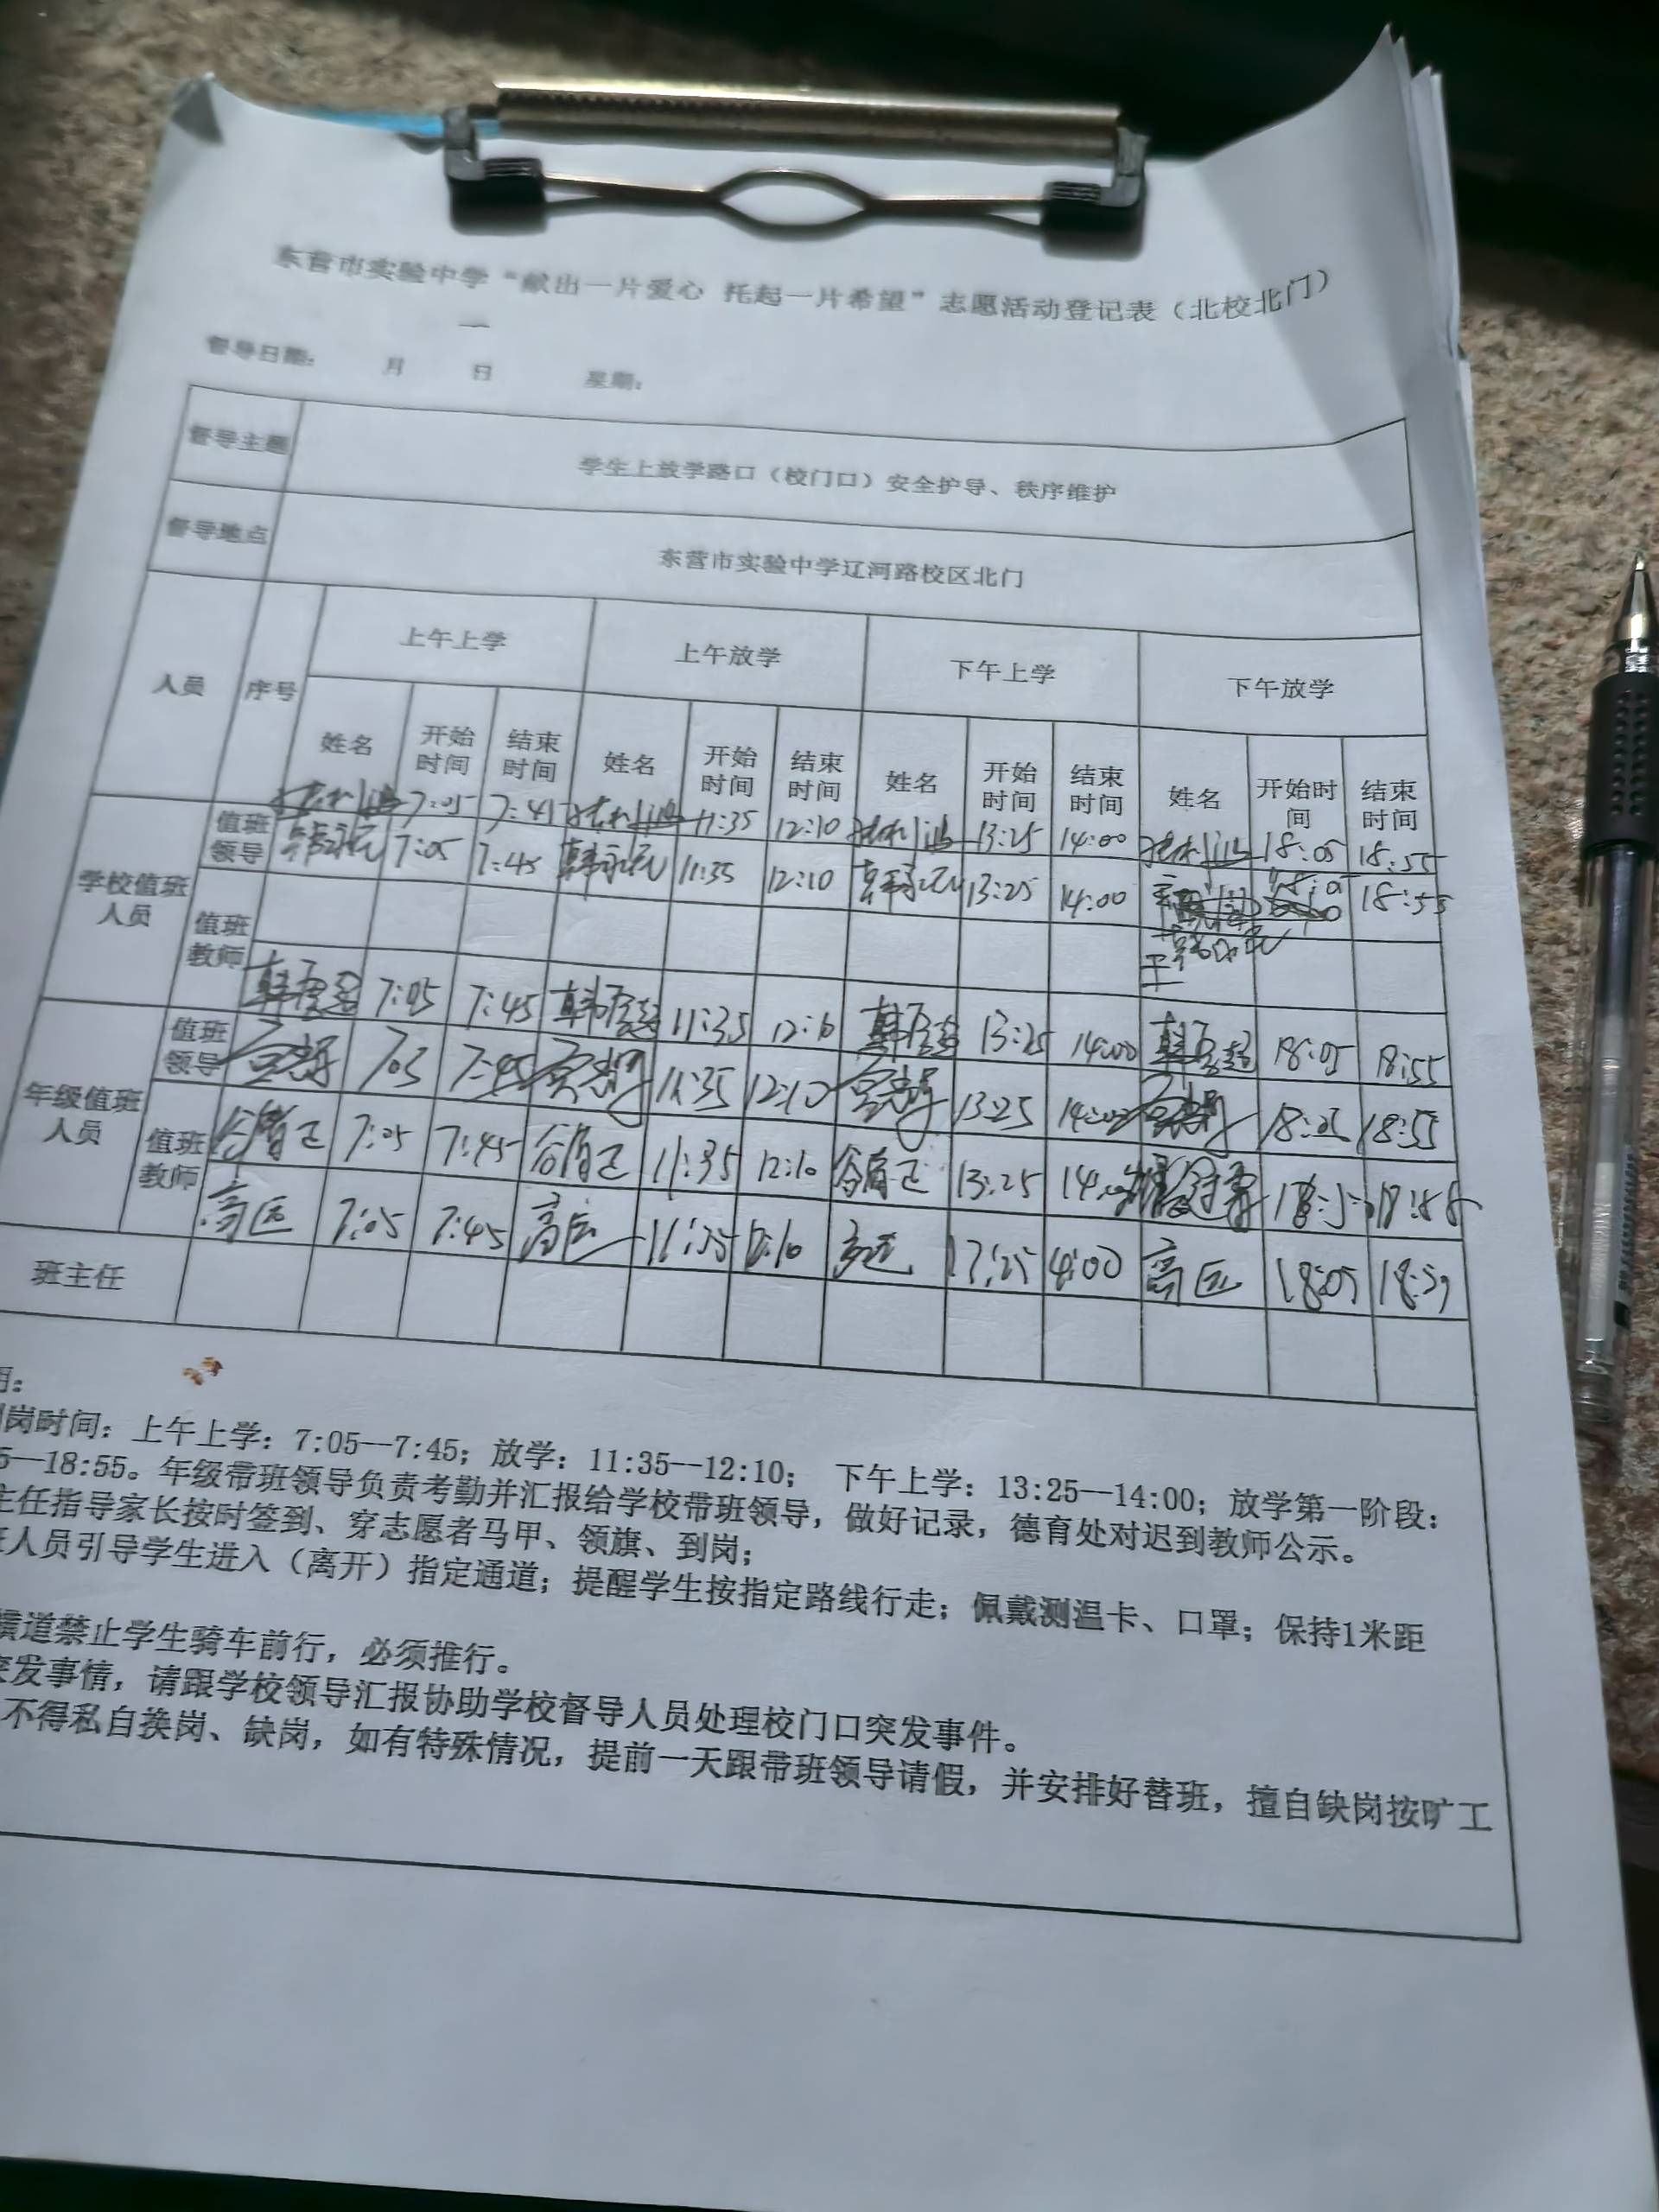 东营市实验中学“献出一片爱心 托起一片希望”志愿活动登记表（北校北门）
督导日期： 月 日 星期：
督导主题 学生上放学路口（校门口）安全护导、秩序维护
督导地点 东营市实验中学辽河路校区北门
人员 序号 上午上学 上午放学 下午上学 下午放学
姓名 开始时间 结束时间 姓名 开始时间 结束时间 姓名 开始时间 结束时间 姓名 开始时间 结束时间
学校值班人员
值班领导 7:05 7:45 11:35 12:10 13:25 14:00 18:05 18:55
韩永元 7:05 7:45 韩永元 11:35 12:10 韩永元 13:25 14:00 18:05 18:55
值班教师
年级值班人员
值班领导 7:05 7:45 11:35 12:10 13:25 14:00 18:05 18:55
7:05 7:45 11:35 12:10 13:25 14:00 18:05 18:55
值班教师 7:05 7:45 11:35 12:10 13:25 14:00
高远 7:05 7:45 高远 11:35 12:10 高远 13:25 14:00 高远 18:05 18:55
班主任
明：
到岗时间：上午上学：7:05--7:45；放学：11:35--12:10； 下午上学：13:25--14:00；放学第一阶段：
5--18:55。年级带班领导负责考勤并汇报给学校带班领导，做好记录，德育处对迟到教师公示。
主任指导家长按时签到、穿志愿者马甲、领旗、到岗；
班人员引导学生进入（离开）指定通道；提醒学生按指定路线行走；佩戴测温卡、口罩；保持1米距
横道禁止学生骑车前行，必须推行。
突发事情，请跟学校领导汇报协助学校督导人员处理校门口突发事件。
不得私自换岗、缺岗，如有特殊情况，提前一天跟带班领导请假，并安排好替班，擅自缺岗按旷工